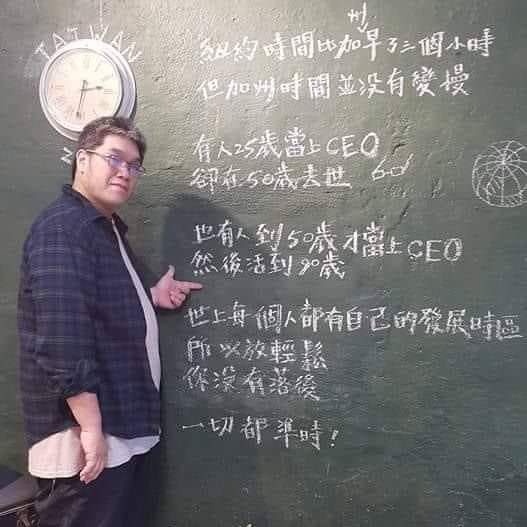 TAIWAN
紐約時間比加州早了三個小時
但加州時間並沒有變慢
有人25歲當上CEO
卻在50歲去世
也有人到50歲才當上CEO
然後活到90歲
世上每個人都有自己的發展時區
所以放輕鬆
你沒有落後
一切都準時！